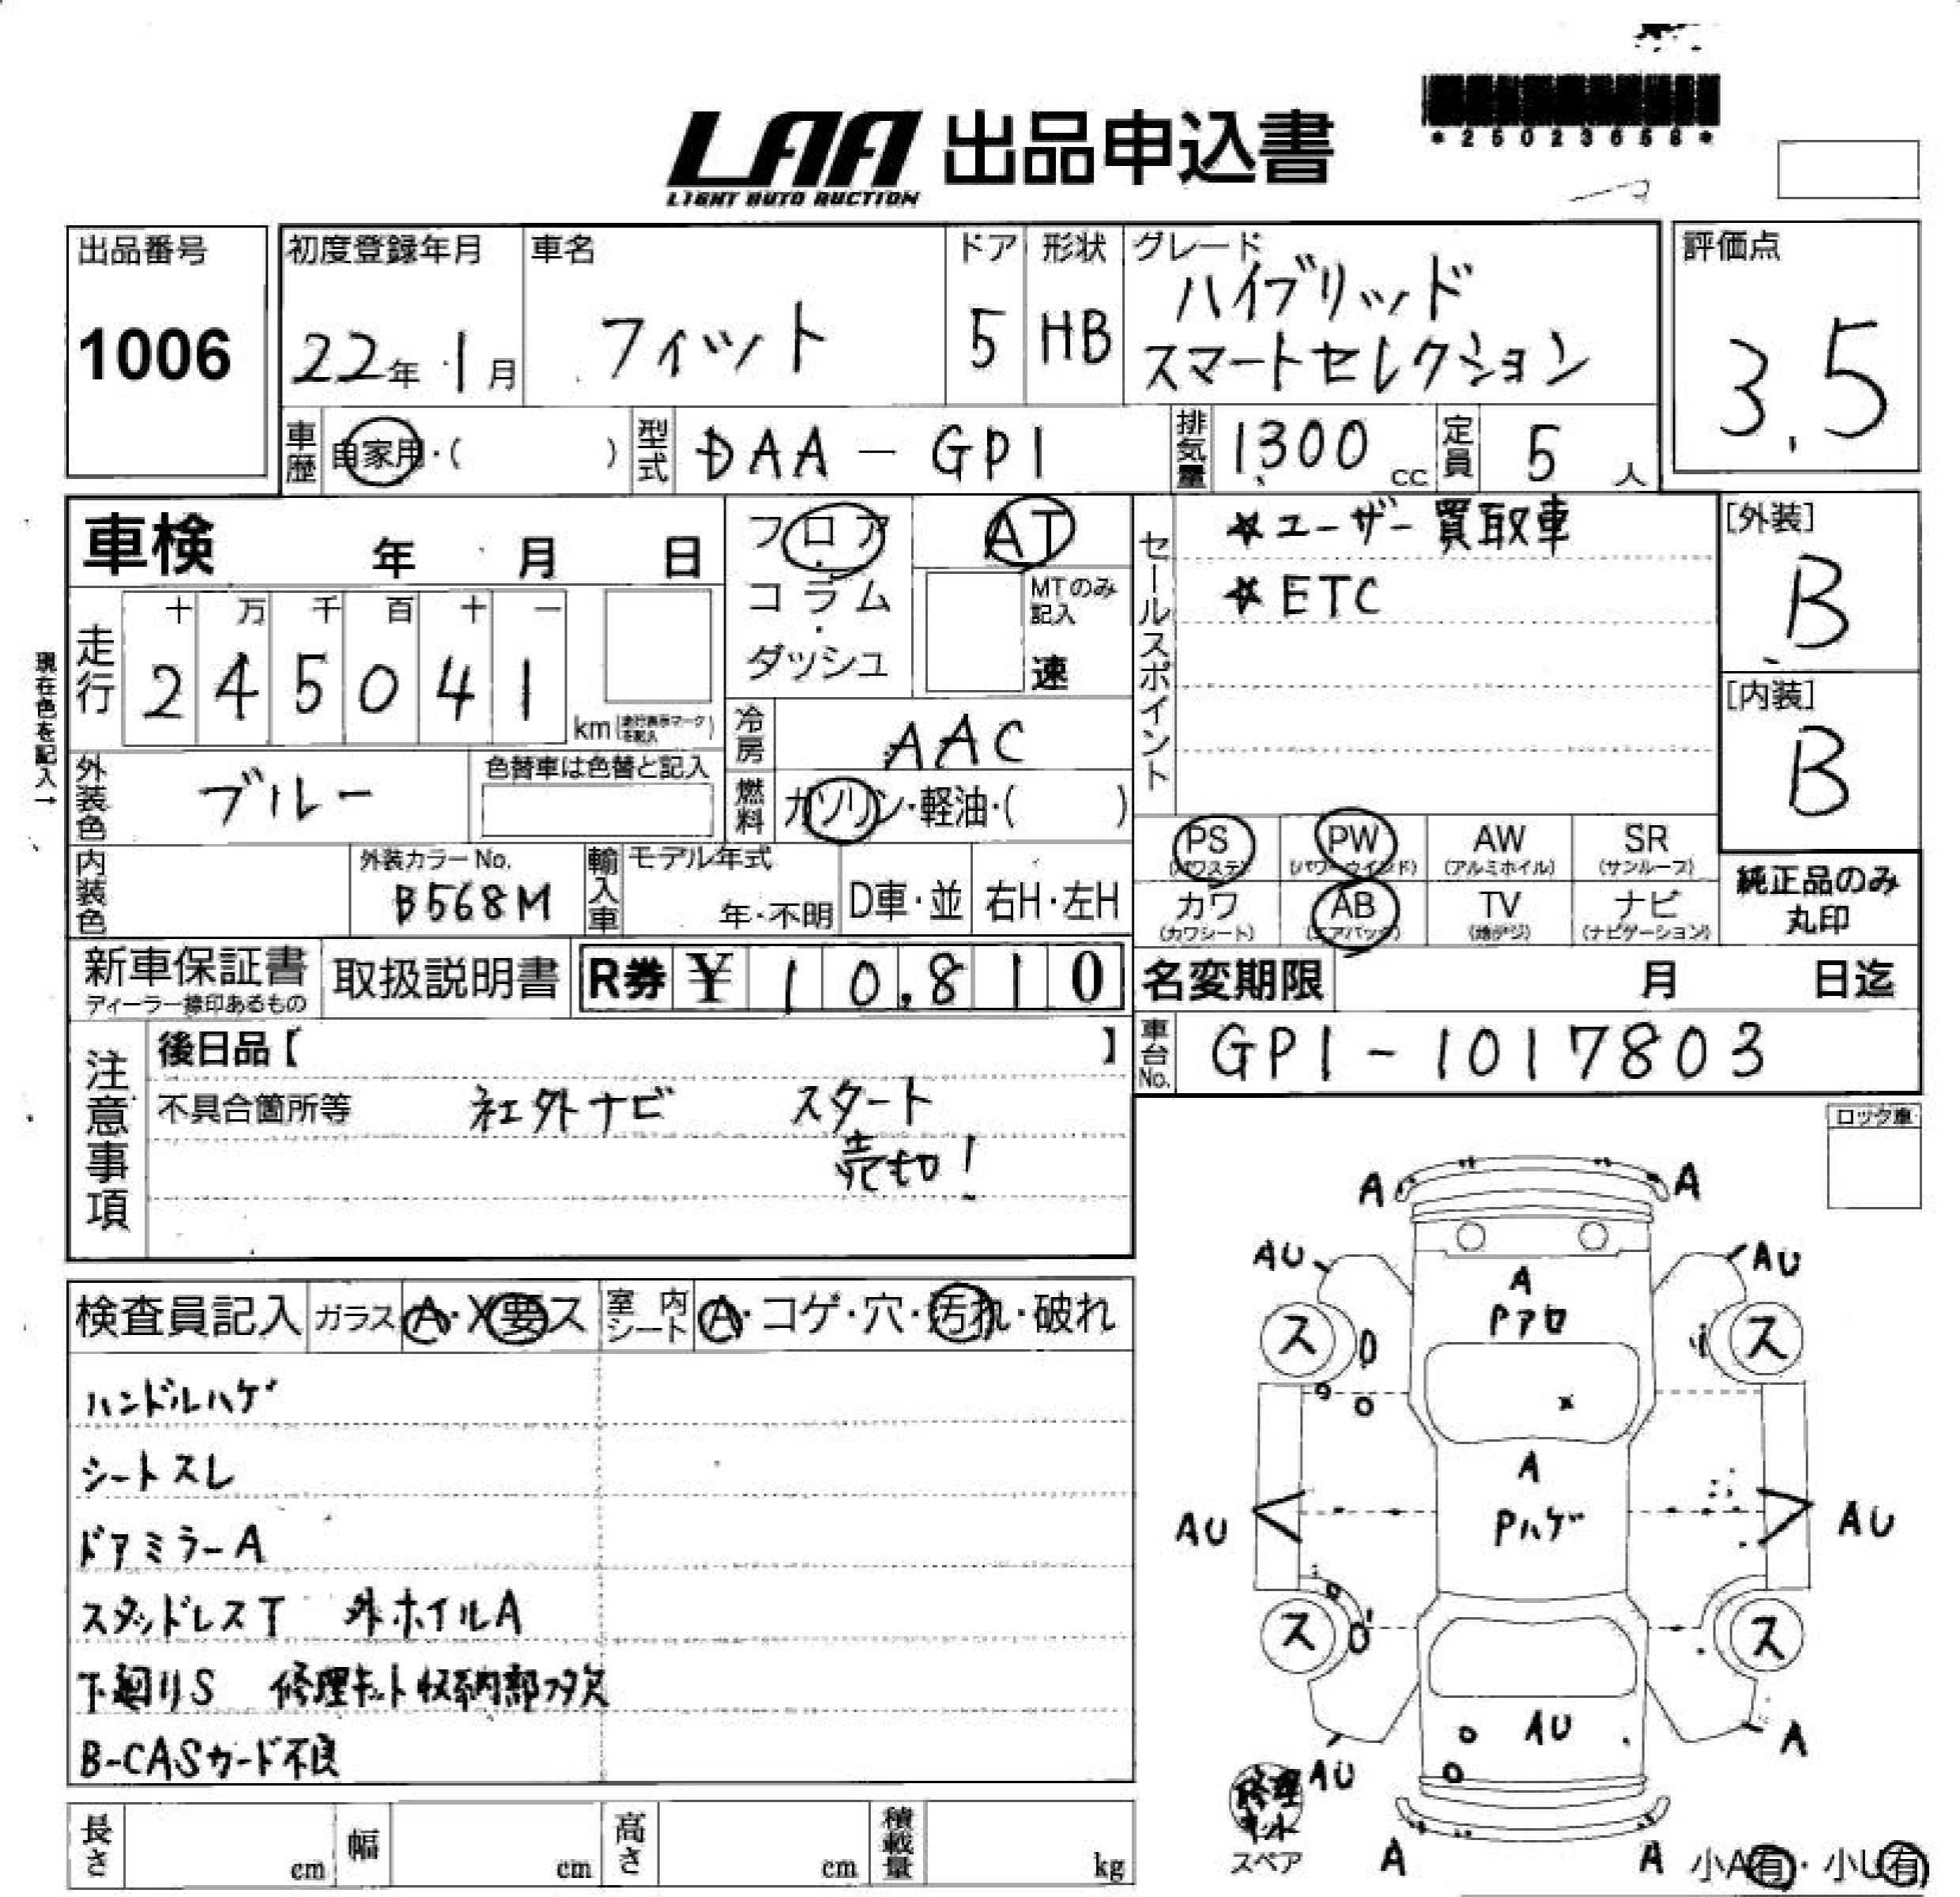 LAA 出品申込書
LIGHT AUTO AUCTION
*25023658*
出品番号
1006
初度登録年月
22年 1月
車名
フィット
ドア
5
形状
HB
グレード
ハイブリッド
スマートセレクション
評価点
3.5
車歴
自家用・( )
型式
DAA-GP1
排気量
1,300 cc
定員
5 人
車検 年 月 日
走行
十 万 千 百 十 一
2 4 5 0 4 1
km(走行表示マークを記入)
現在色を記入→
外装色
ブルー
色替車は色替と記入
内装色
外装カラーNo.
B568M
フロア・
コラム・
ダッシュ
AT
MTのみ記入
速
冷房
AAC
燃料
ガソリン・軽油・( )
輸入車
モデル年式
年・不明
D車・並
右H・左H
セールスポイント
☆ユーザー買取車
☆ETC
[外装]
B
[内装]
B
PS
(パワステ)
PW
(パワーウインド)
AW
(アルミホイル)
SR
(サンルーフ)
カワ
(カワシート)
AB
(エアバック)
TV
(地デジ)
ナビ
(ナビゲーション)
純正品のみ
丸印
新車保証書
ディーラー捺印あるもの
取扱説明書
R券 ¥ 10,810
名変期限 月 日迄
車台No.
GP1-1017803
注意事項
後日品【 】
不具合箇所等
社外ナビ スタート
売切!
ロック車
検査員記入
ガラス
A・X要ス
室内シート
A・コゲ・穴・汚れ・破れ
ハンドルハゲ
シートスレ
ドアミラーA
スタッドレスT 外ホイルA
下廻りS 修理キット収納部フタ欠
B-CASカード不良
長さ cm
幅 cm
高さ cm
積載量 kg
A A
AU AU
A
Pアセ
ス ス
A
AU Pハゲ AU
ス ス
AU
AU A
修理
キット
スペア
A A
小A有・小U有